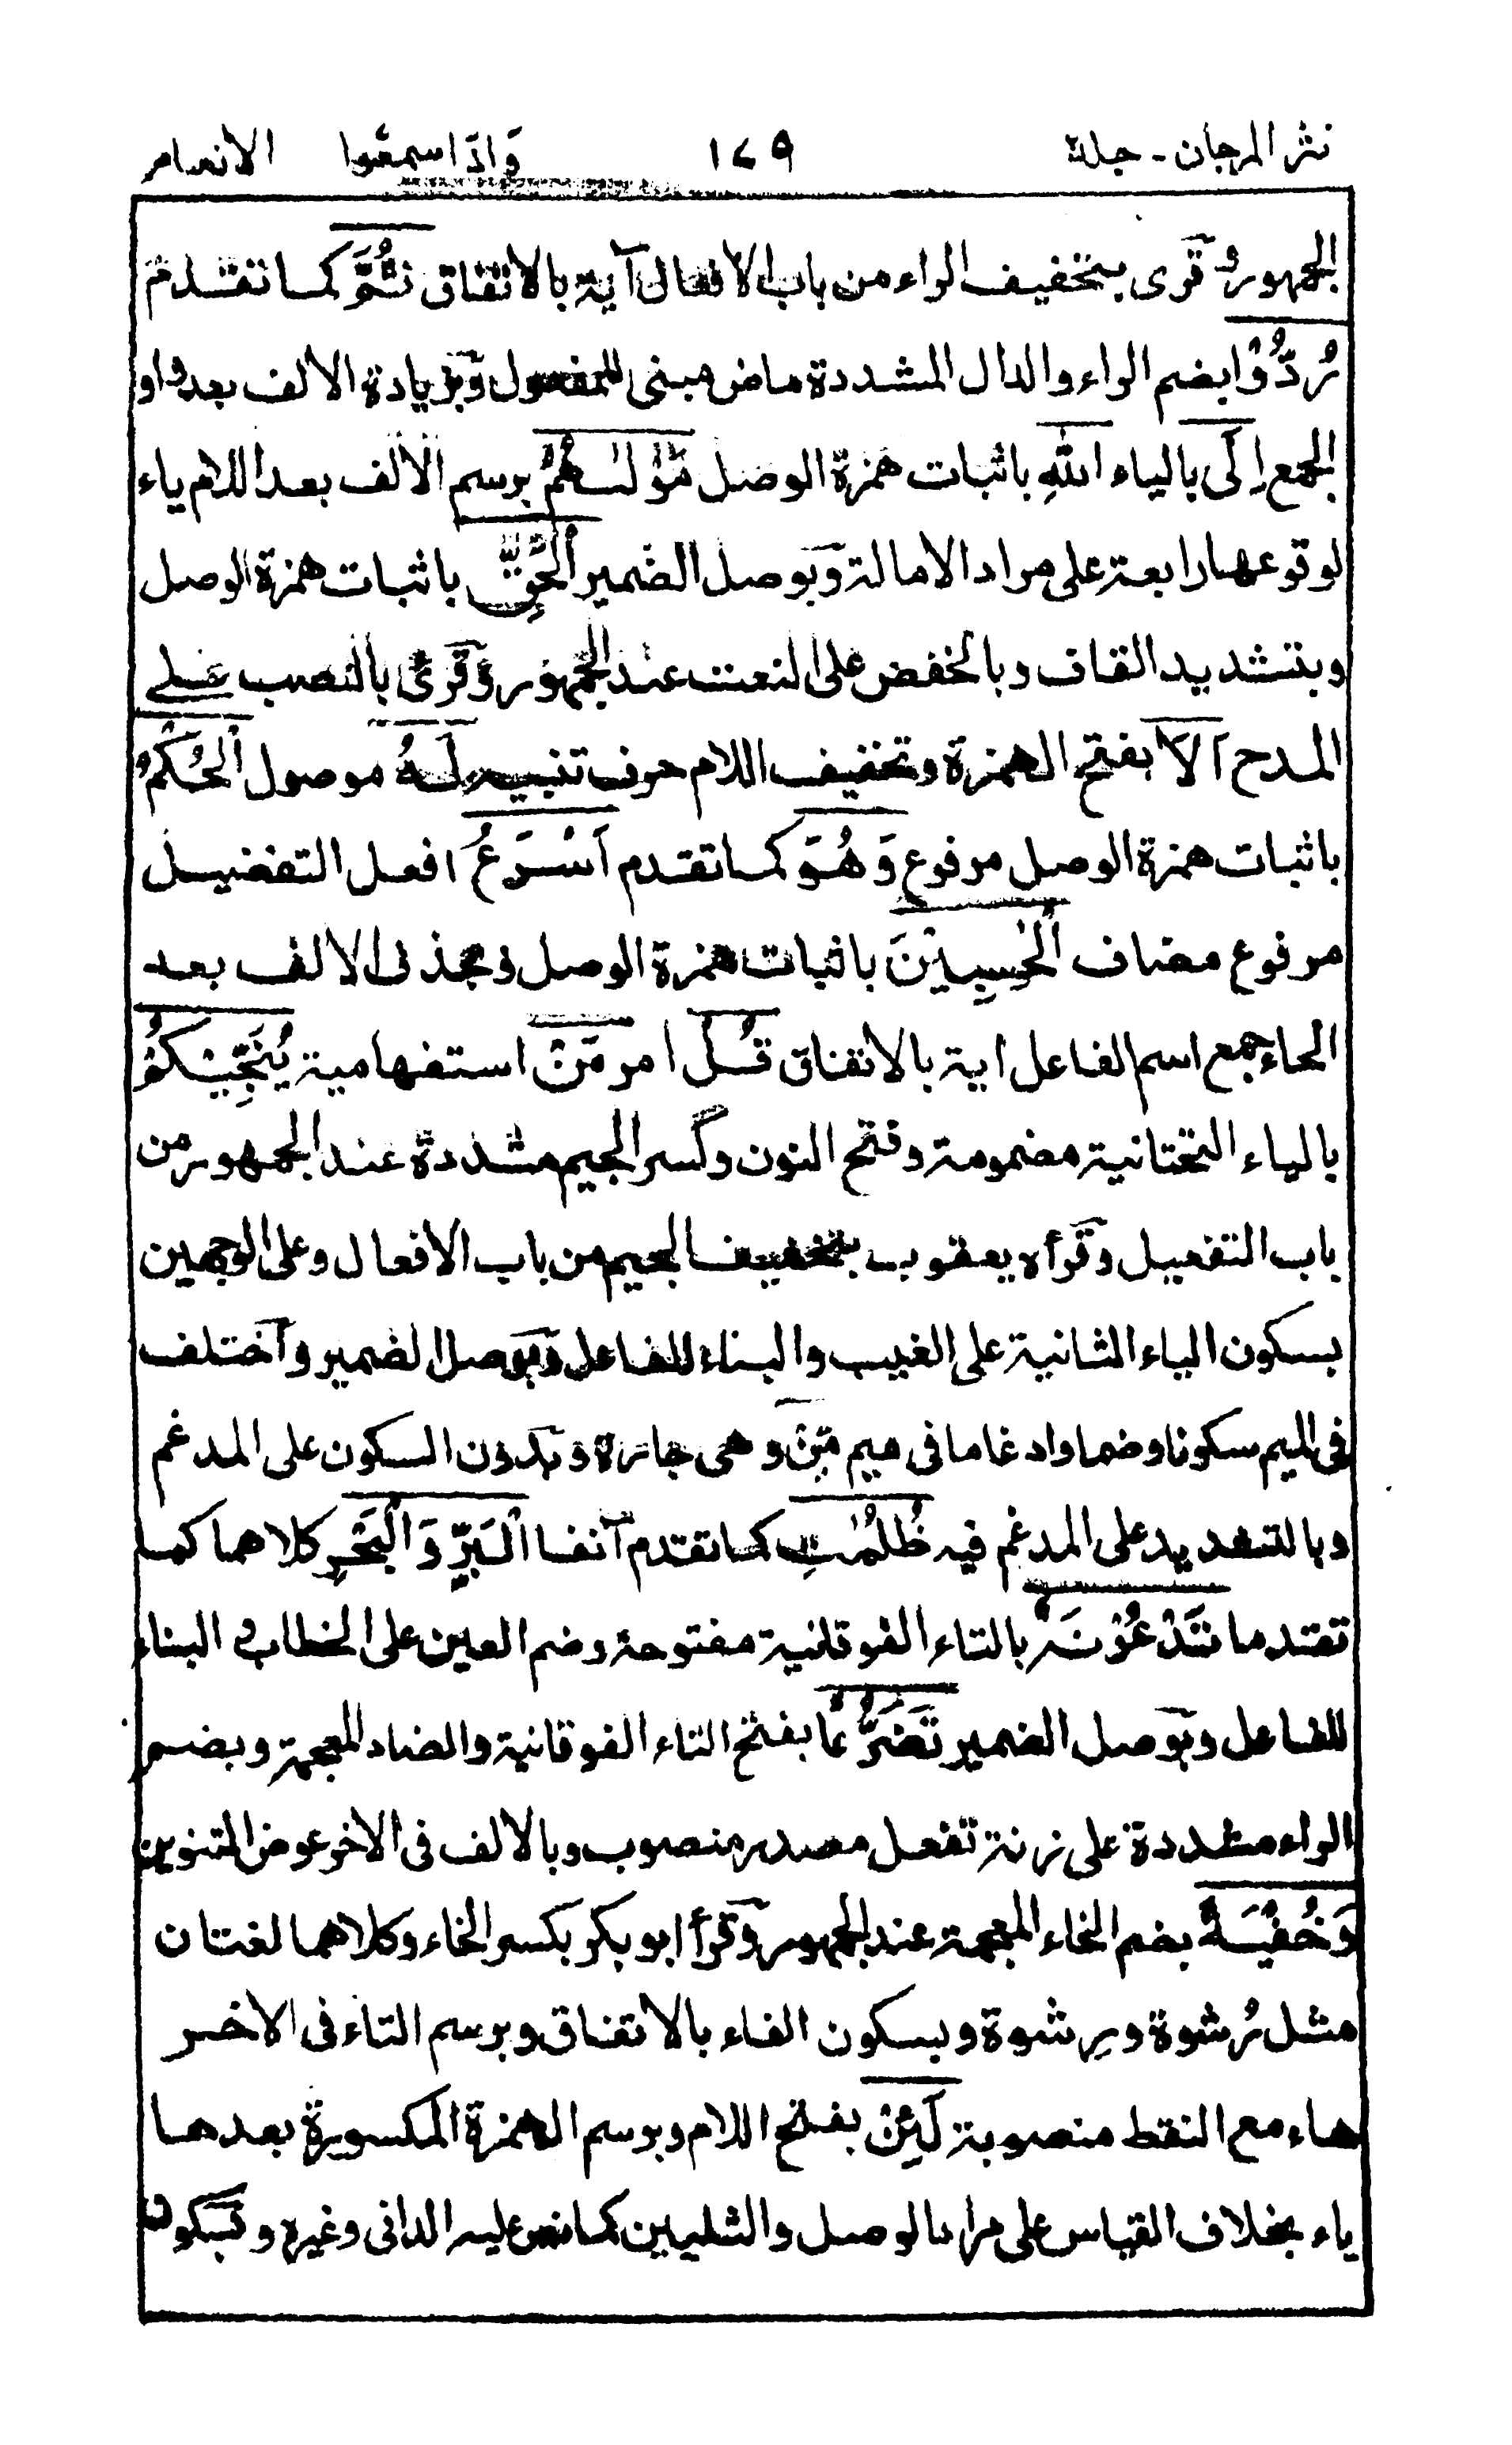 نثر المرجان - جلد٢ ١٧٩ وَاذا سمعوا الانعام
الجمهور وقرى بتخفيف الراء من باب الافعال آية بالاتفاق ثُمَّ كما تقدم
رُدُّوْا بضم الراء والدال المشددة ماض مبنى للمفعول وبزيادة الالف بعد واو
الجمع اِلَى بالياء اللهِ باثبات همزة الوصل مَوْلٰىهُمُ برسم الالف بعد اللام ياء
لوقوعها رابعة على مراد الامالة وبوصل الضمير الْحَقِّ باثبات همزة الوصل
وبتشديد القاف وبالخفض على النعت عند الجمهور وقرئ بالنصب على
المدح اَلَا بفتح الهمزة وتخفيف اللام حرف تنبيه لَهُ موصول الْحُكْمُ
باثبات همزة الوصل مرفوع وَهُوَ كما تقدم اَسْرَعُ افعل التفضيل
مرفوع مضاف الْحٰسِبِيْنَ باثبات همزة الوصل وبحذف الالف بعد
الحاء جمع اسم الفاعل اية بالاتفاق قُلْ امر مَنْ استفهامية يُنَجِّيْكُمْ
بالياء التحتانية مضمومة وفتح النون وكسر الجيم مشددة عند الجمهور من
باب التفعيل وقرأه يعقوب بتخفيف الجيم من باب الافعال وعلى الوجهين
بسكون الياء الثانية على الغيب والبناء للفاعل وبوصل الضمير واختلف
فى الميم سكونا وضما وادغاما فى ميم مِّنْ وهى جارة وبدون السكون على المدغم
وبالتشديد على المدغم فيه ظُلُمٰتِ كما تقدم آنفا الْبَرِّ وَالْبَحْرِ كلاهما كما
تقدما تَدْعُوْنَهٗ بالتاء الفوقانية مفتوحة وضم العين على الخطاب والبناء
للفاعل وبوصل الضمير تَضَرُّعًا بفتح التاء الفوقانية والضاد المعجمة وبضم
الراء مشددة على زنة تفعل مصدر منصوب وبالالف فى الاخر عوض التنوين
وَخُفْيَةً بضم الخاء المعجمة عند الجمهور وقرأ ابو بكر بكسر الخاء وكلاهما لغتان
مثل رُشوة ورِشوة وبسكون الفاء بالاتفاق وبرسم التاء فى الاخر
هاء مع النقط منصوبة لَئِنْ بفتح اللام وبرسم الهمزة المكسورة بعدها
ياء بخلاف القياس على مراد الوصل والتليين كما نص عليه الدانى وغيره وبسكون